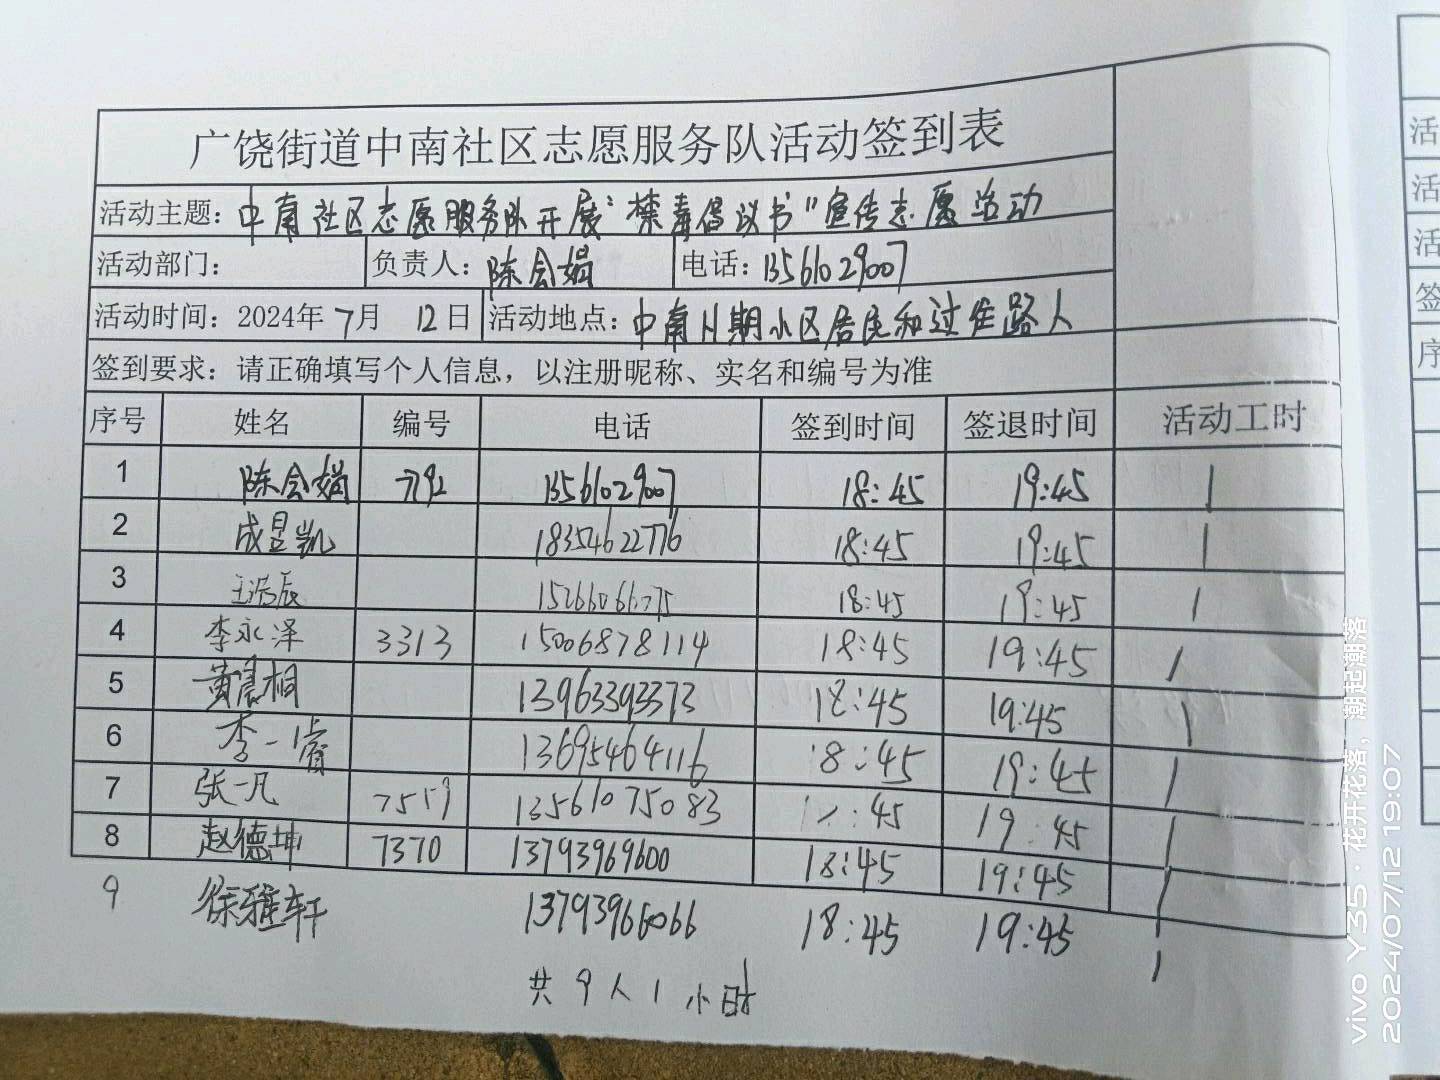 广饶街道中南社区志愿服务队活动签到表
活动主题：中南社区志愿服务队开展“禁毒倡议书”宣传志愿活动
活动部门： 负责人：陈会娟 电话：13561029007
活动时间：2024年7月12日 活动地点：中南H期小区居民和过往路人
签到要求：请正确填写个人信息，以注册昵称、实名和编号为准
序号 姓名 编号 电话 签到时间 签退时间 活动工时
1 陈会娟 13561029007 18:45 19:45 1
2 成昱凯 18354622776 18:45 19:45 1
3 王浩辰 18:45 19:45 1
4 李永泽 3313 15006878114 18:45 19:45 1
5 黄晨桐 13963393373 18:45 19:45 1
6 李一睿 13695464116 18:45 19:45 1
7 张一凡 13561075083 :45 19:45 1
8 赵德坤 7370 13793969600 18:45 19:45 1
9 徐雅轩 13793966066 18:45 19:45 1
共9人1小时
vivo Y35 · 花开花落，潮起潮落
2024/07/12 19:07
活
活
活
签
序